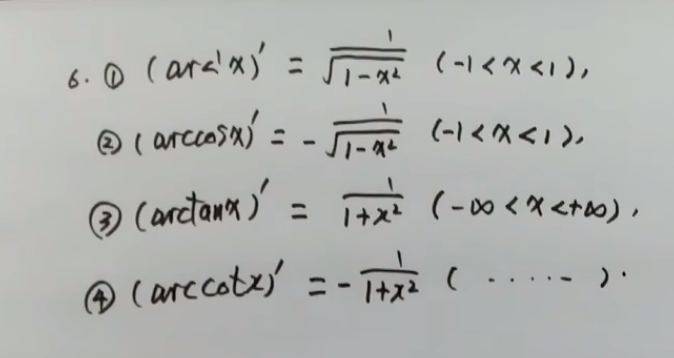 6. ① (arc'x)' = 1/√(1-x²) (-1<x<1),
② (arccosx)' = - 1/√(1-x²) (-1<x<1),
③ (arctanx)' = 1/(1+x²) (-∞<x<+∞),
④ (arccotx)' = - 1/(1+x²) (·····).